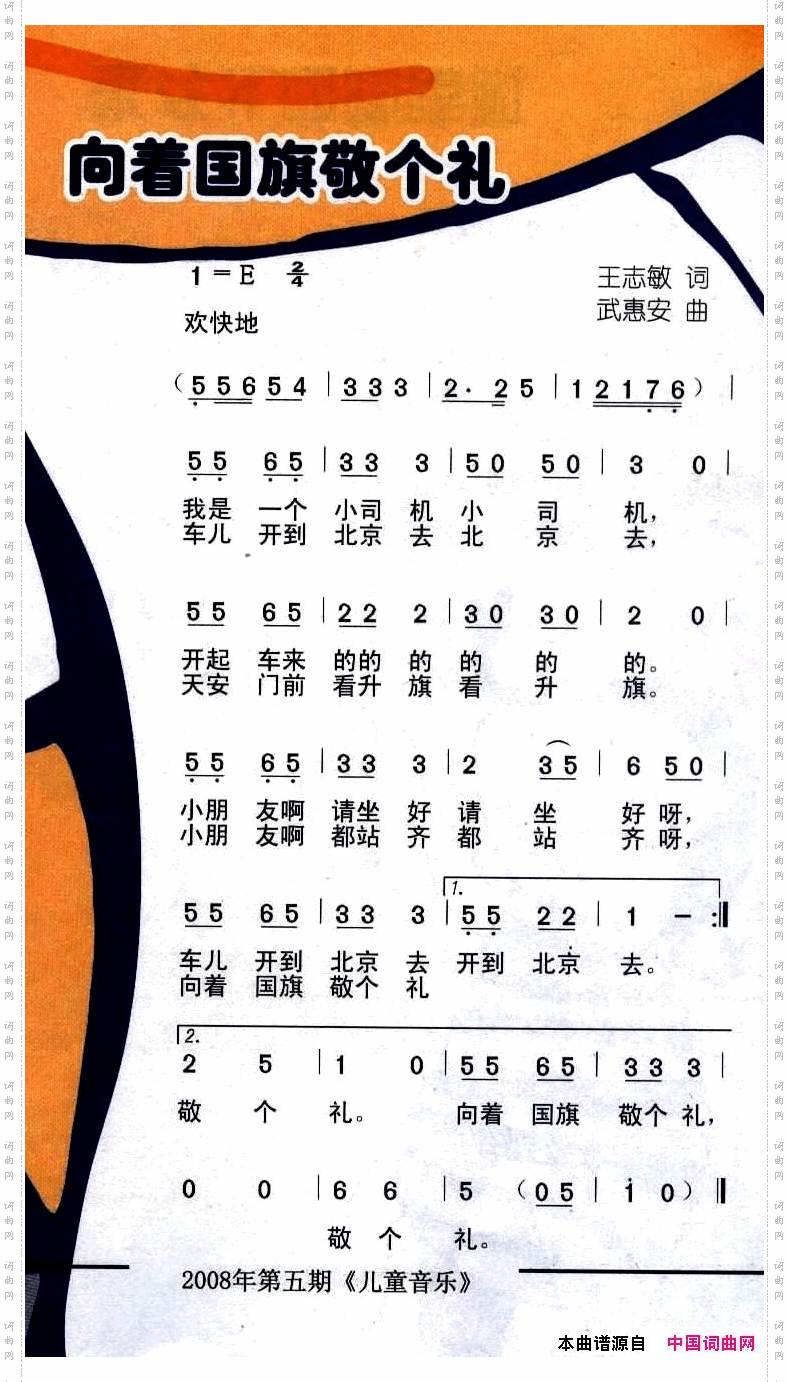 向着国旗敬个礼
1=E 2/4
王志敏 词
欢快地
武惠安 曲
（5 5 6 5 4 | 3 3 3 | 2· 2 5 | 1 2 1 7 6 ）|
5 5 6 5 | 3 3 3 | 5 0 5 0 | 3 0 |
我是 一个 小司 机 小 司 机，
车儿 开到 北京 去 北 京 去，
5 5 6 5 | 2 2 2 | 3 0 3 0 | 2 0 |
开起 车来 的的 的 的 的 的。
天安 门前 看升 旗 看 升 旗。
5 5 6 5 | 3 3 3 | 2 3 5 | 6 5 0 |
小朋 友啊 请坐 好 请 坐 好 呀，
小朋 友啊 都站 齐 都 站 齐 呀，
1.
5 5 6 5 | 3 3 3 | 5 5 2 2 | 1 － :‖
车儿 开到 北京 去 开到 北京 去。
向着 国旗 敬个 礼
2.
2 5 | 1 0 | 5 5 6 5 | 3 3 3 |
敬 个 礼。 向着 国旗 敬个 礼，
0 0 | 6 6 | 5 （0 5 | i 0）‖
敬 个 礼。
2008年第五期《儿童音乐》
本曲谱源自 中国词曲网